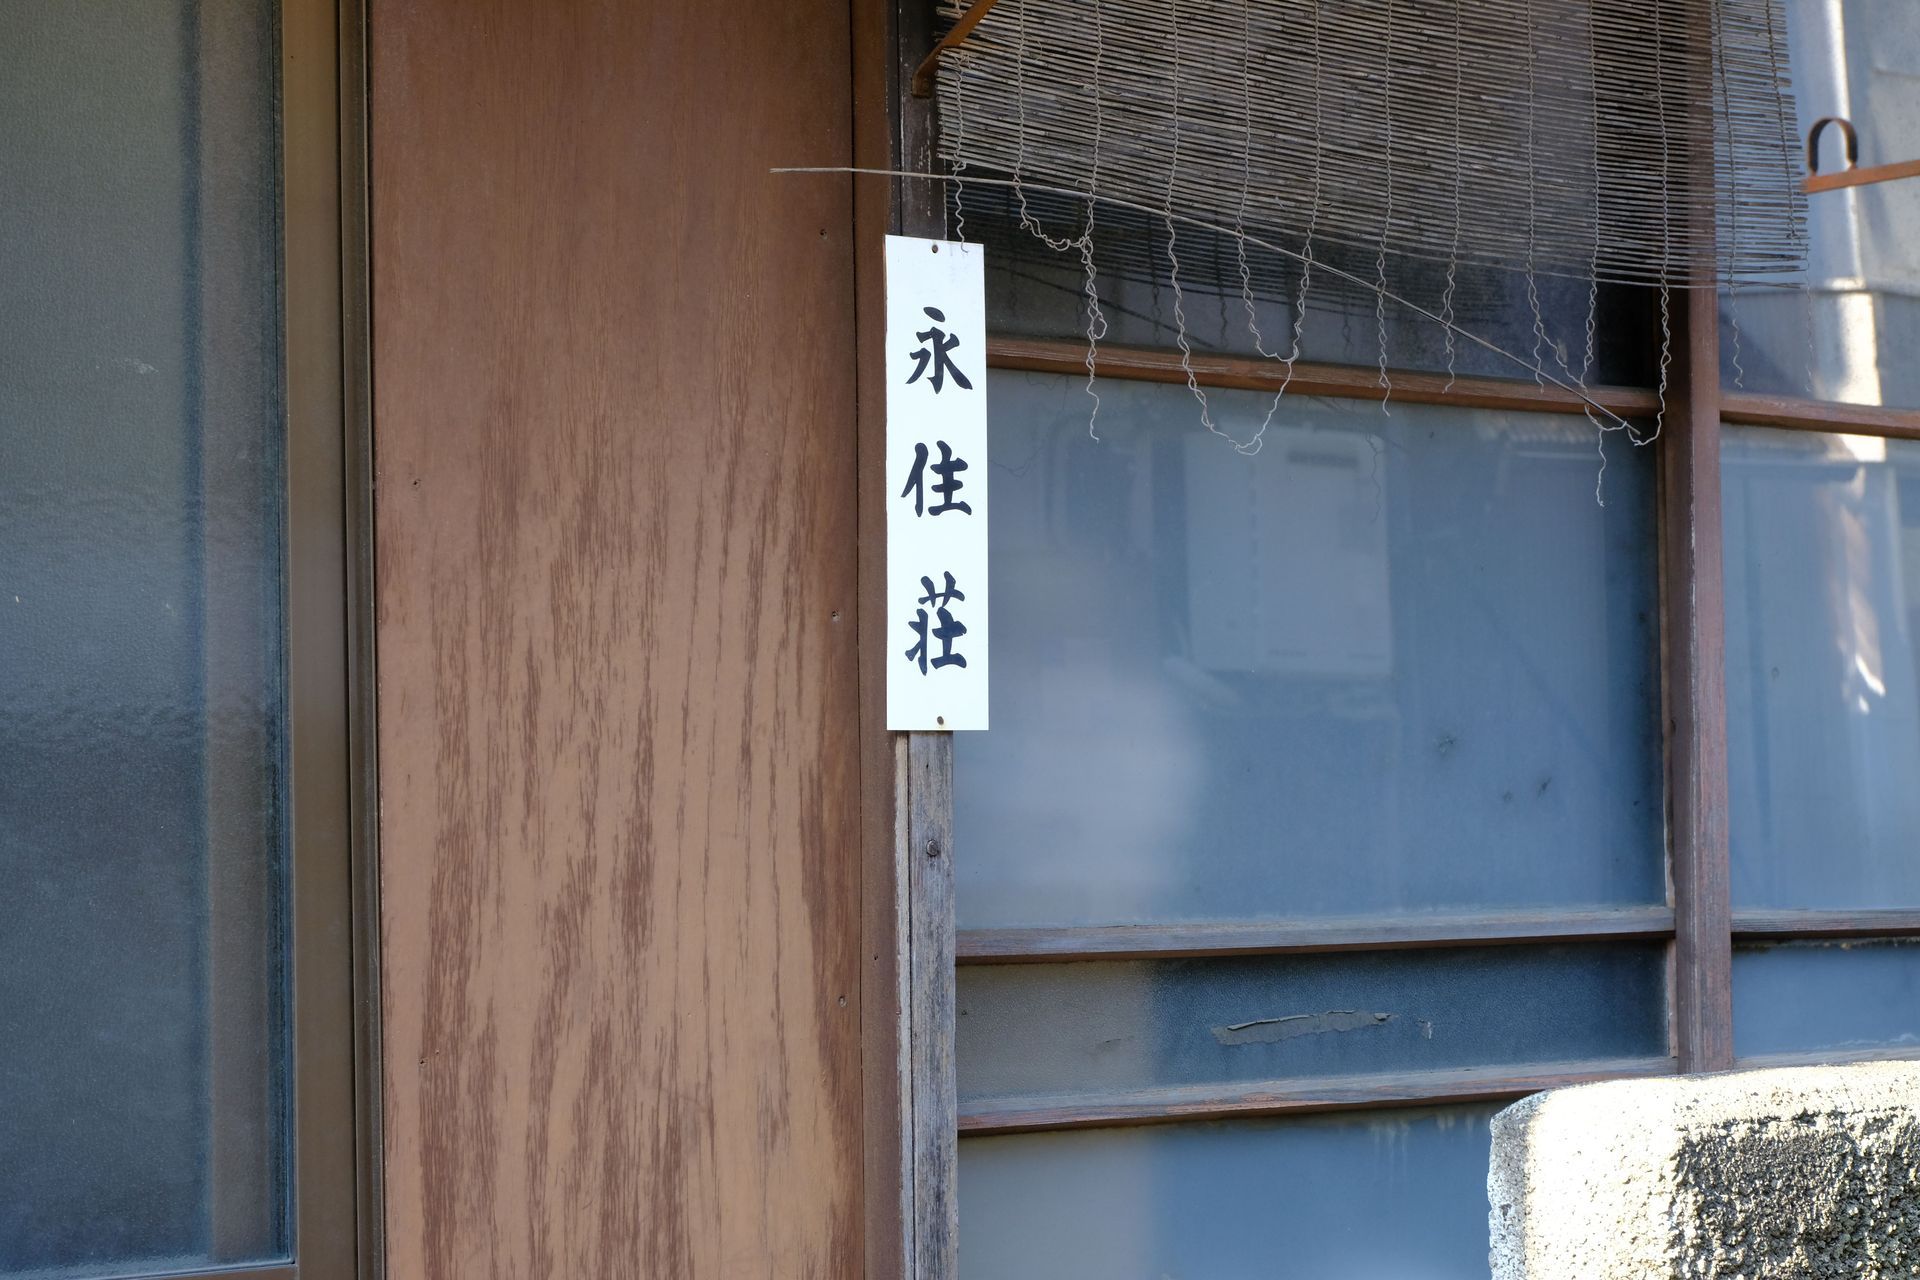 永住荘